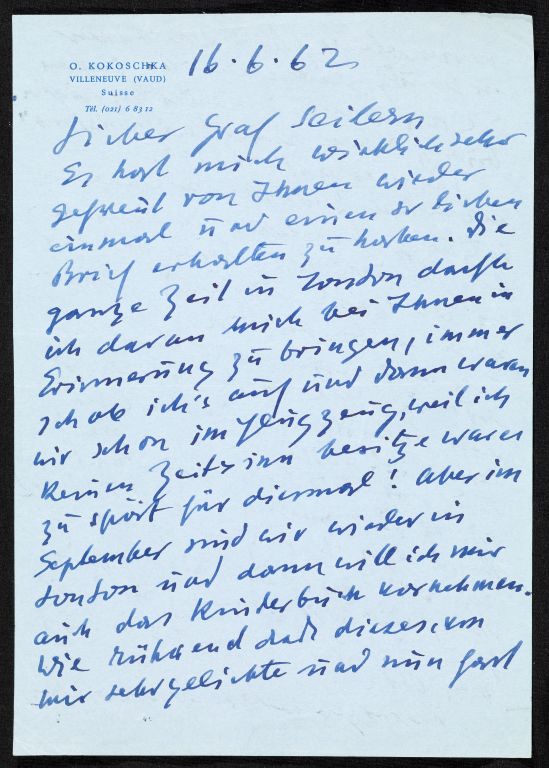 O. KOKOSCHKA
VILLENEUVE (VAUD)
Suisse
Tél. (021) 6 83 12
16.6.62
Lieber Graf Seilern
Es hat mich wirklich sehr
gefreut von Ihnen wieder
einmal und einen so lieben
Brief erhalten zu haben. Die
ganze Zeit in London dachte
ich daran mich bei Ihnen in
Erinnerung zu bringen, immer
schob ich's auf und dann waren
wir schon im Flugzeug, weil ich
keinen Zeitsinn besitze waren
zu spät für diesmal! Aber im
September sind wir wieder in
London und dann will ich mir
auch das Kinderbuch vornehmen.
Wie rührend daß dieses von
mir sehr geliebte und nun fast